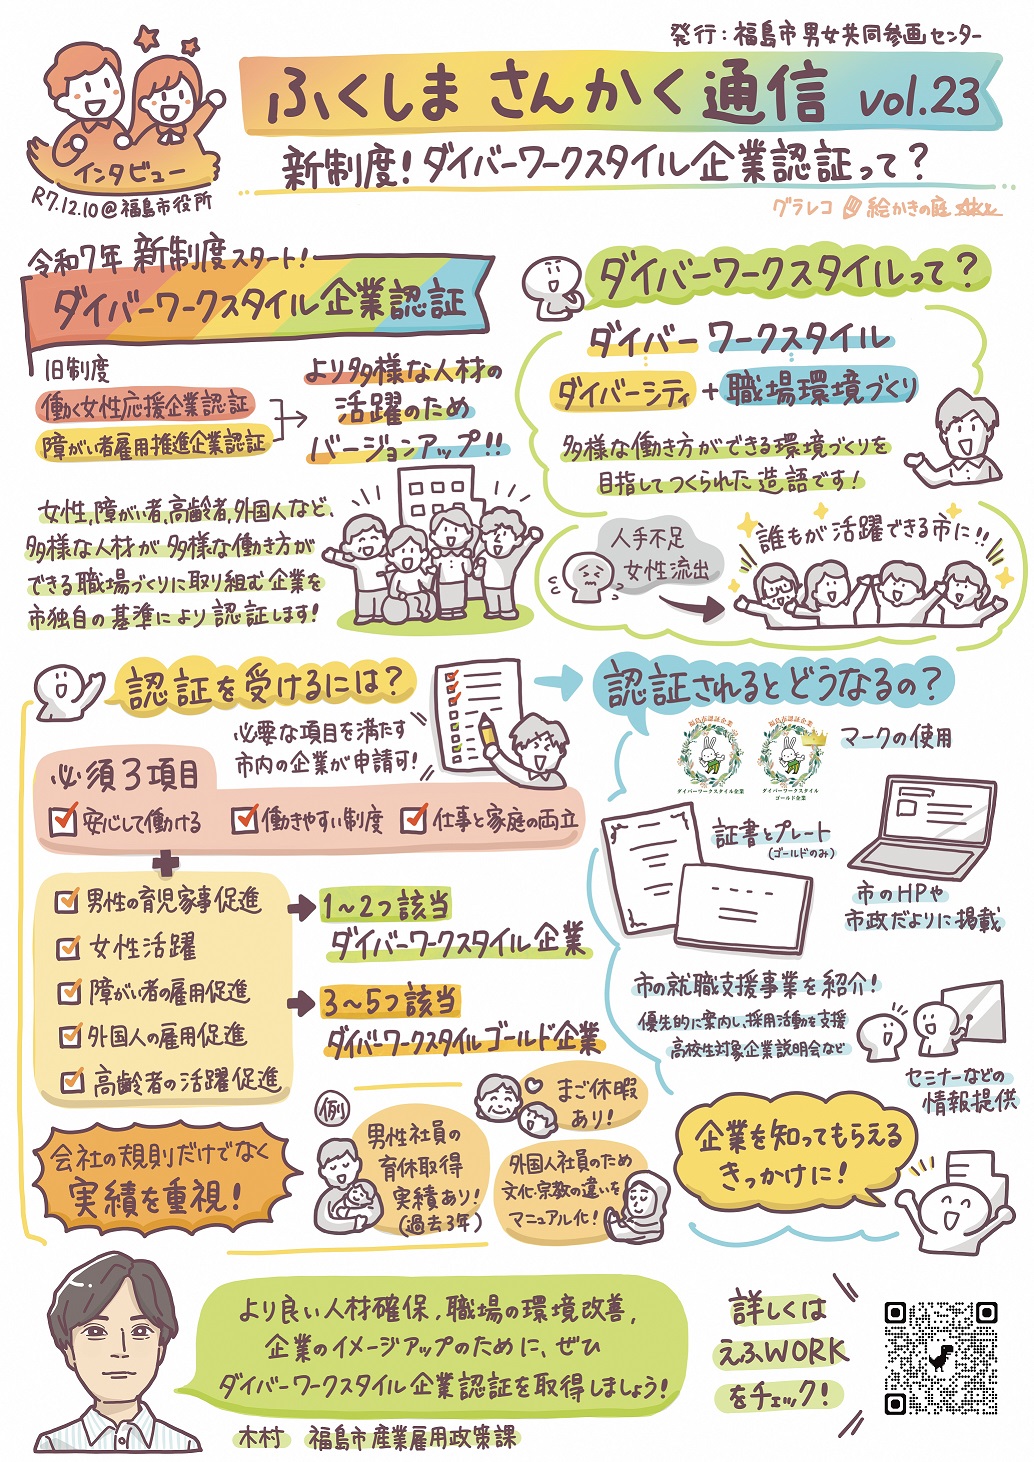 発行：福島市男女共同参画センター
ふくしま さんかく 通信 vol.23
新制度！ダイバーワークスタイル企業認証って？
インタビュー
R7.12.10＠福島市役所
グラレコ 絵かきの庭
令和7年 新制度スタート！
ダイバーワークスタイル企業認証
旧制度
働く女性応援企業認証
障がい者雇用推進企業認証
より多様な人材の
活躍のため
バージョンアップ！！
女性,障がい者,高齢者,外国人など、
多様な人材が多様な働き方が
できる職場づくりに取り組む企業を
市独自の基準により認証します！
ダイバーワークスタイルって？
ダイバー ワークスタイル
ダイバーシティ＋職場環境づくり
多様な働き方ができる環境づくりを
目指してつくられた造語です！
人手不足
女性流出
誰もが活躍できる市に！！
認証を受けるには？
必要な項目を満たす
市内の企業が申請可！
必須3項目
安心して働ける
働きやすい制度
仕事と家庭の両立
男性の育児家事促進
女性活躍
障がい者の雇用促進
外国人の雇用促進
高齢者の活躍促進
1～2つ該当
ダイバーワークスタイル企業
3～5つ該当
ダイバーワークスタイルゴールド企業
会社の規則だけでなく
実績を重視！
例
男性社員の
育休取得
実績あり！
（過去3年）
まご休暇
あり！
外国人社員のため
文化・宗教の違いを
マニュアル化！
認証されるとどうなるの？
福島市認証企業
ダイバーワークスタイル企業
福島市認証企業
ダイバーワークスタイル
ゴールド企業
マークの使用
証書とプレート
（ゴールドのみ）
市のHPや
市政だよりに掲載
市の就職支援事業を紹介！
優先的に案内し、採用活動を支援
高校生対象企業説明会など
セミナーなどの
情報提供
企業を知ってもらえる
きっかけに！
より良い人材確保、職場の環境改善,
企業のイメージアップのために、ぜひ
ダイバーワークスタイル企業認証を取得しましょう！
木村 福島市産業雇用政策課
詳しくは
えふWORK
をチェック！